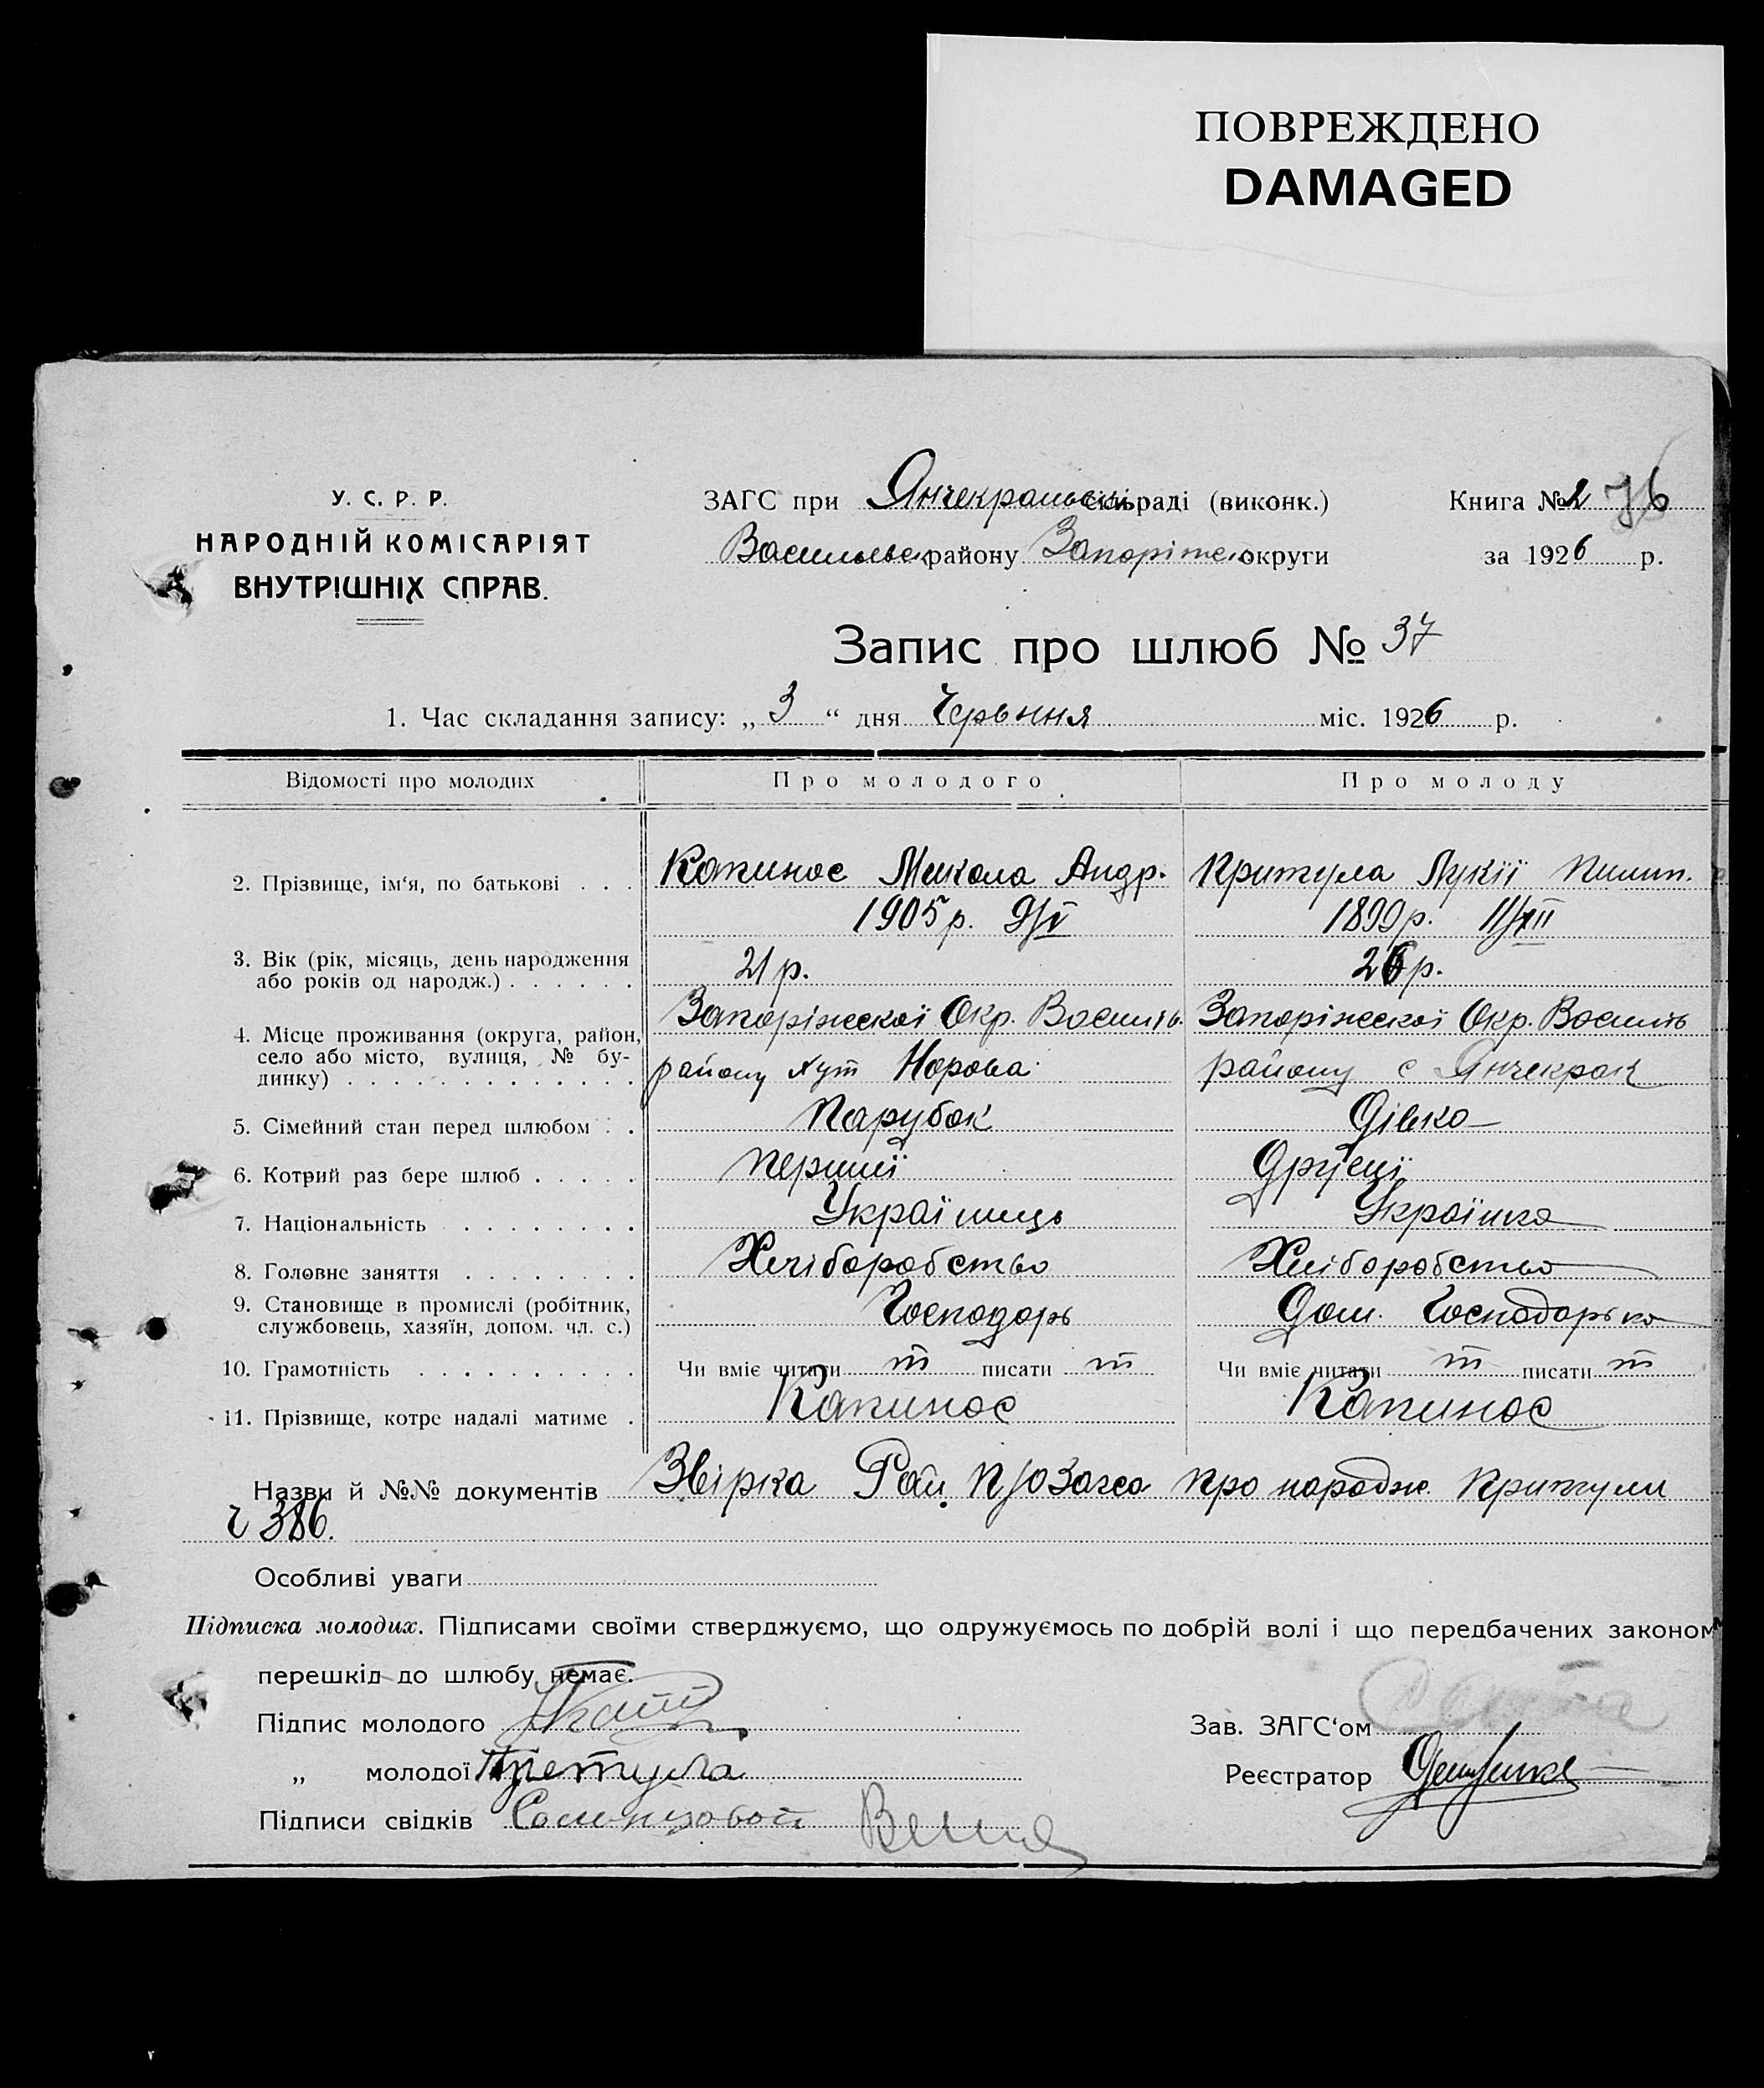 ПОВРЕЖДЕНО
DAMAGED
У. С. Р. Р.
НАРОДНІЙ КОМІСАРІЯТ
ВНУТРІШНІХ СПРАВ.
ЗАГС при Янчекральськ. сільраді (виконк.)
Васильев. району Запоріжс. округи
Книга № 2 76
за 1926 р.
Запис про шлюб № 37
1. Час складання запису: „ 3 “ дня Червння міс. 1926 р.
Відомості про молодих Про молодого Про молоду
2. Прізвище, ім‘я, по батькові . . . Капинос Микола Андр. Притула Лукії Пилип.
1905 р. 9/V 1899 р.
3. Вік (рік, місяць, день народження
або років од народж.) . . . . . . 21 р. 26 р.
4. Місце проживання (округа, район, Запоріжської Окр. Василів. Запоріжської Окр. Василів
село або місто, вулиця, № бу-
динку) . . . . . . . . . . . . . району хут Норова району с Янчекрак
5. Сімейний стан перед шлюбом . . Парубок Дівка
6. Котрий раз бере шлюб . . . . . Перший Другий
7. Національність . . . . . . . Українець Українка
8. Головне заняття . . . . . . . . Хліборобство Хліборобство
9. Становище в промислі (робітник,
службовець, хазяїн, допом. чл. с.) Господарь Дом. Господарька
10. Грамотність . . . . . . . . . . Чи вміє читати т писати т Чи вміє читати т писати т
11. Прізвище, котре надалі матиме . Капинос Капинос
Назви й №№ документів Звірка Рай про народж. Притули
ч 386.
Особливі уваги
Підписка молодих. Підписами своїми стверджуємо, що одружуємось по добрій волі і що передбачених законом
перешкід до шлюбу немає.
Підпис молодого
Зав. ЗАГС‘ом
„ молодої Притула
Реєстратор
Підписи свідків